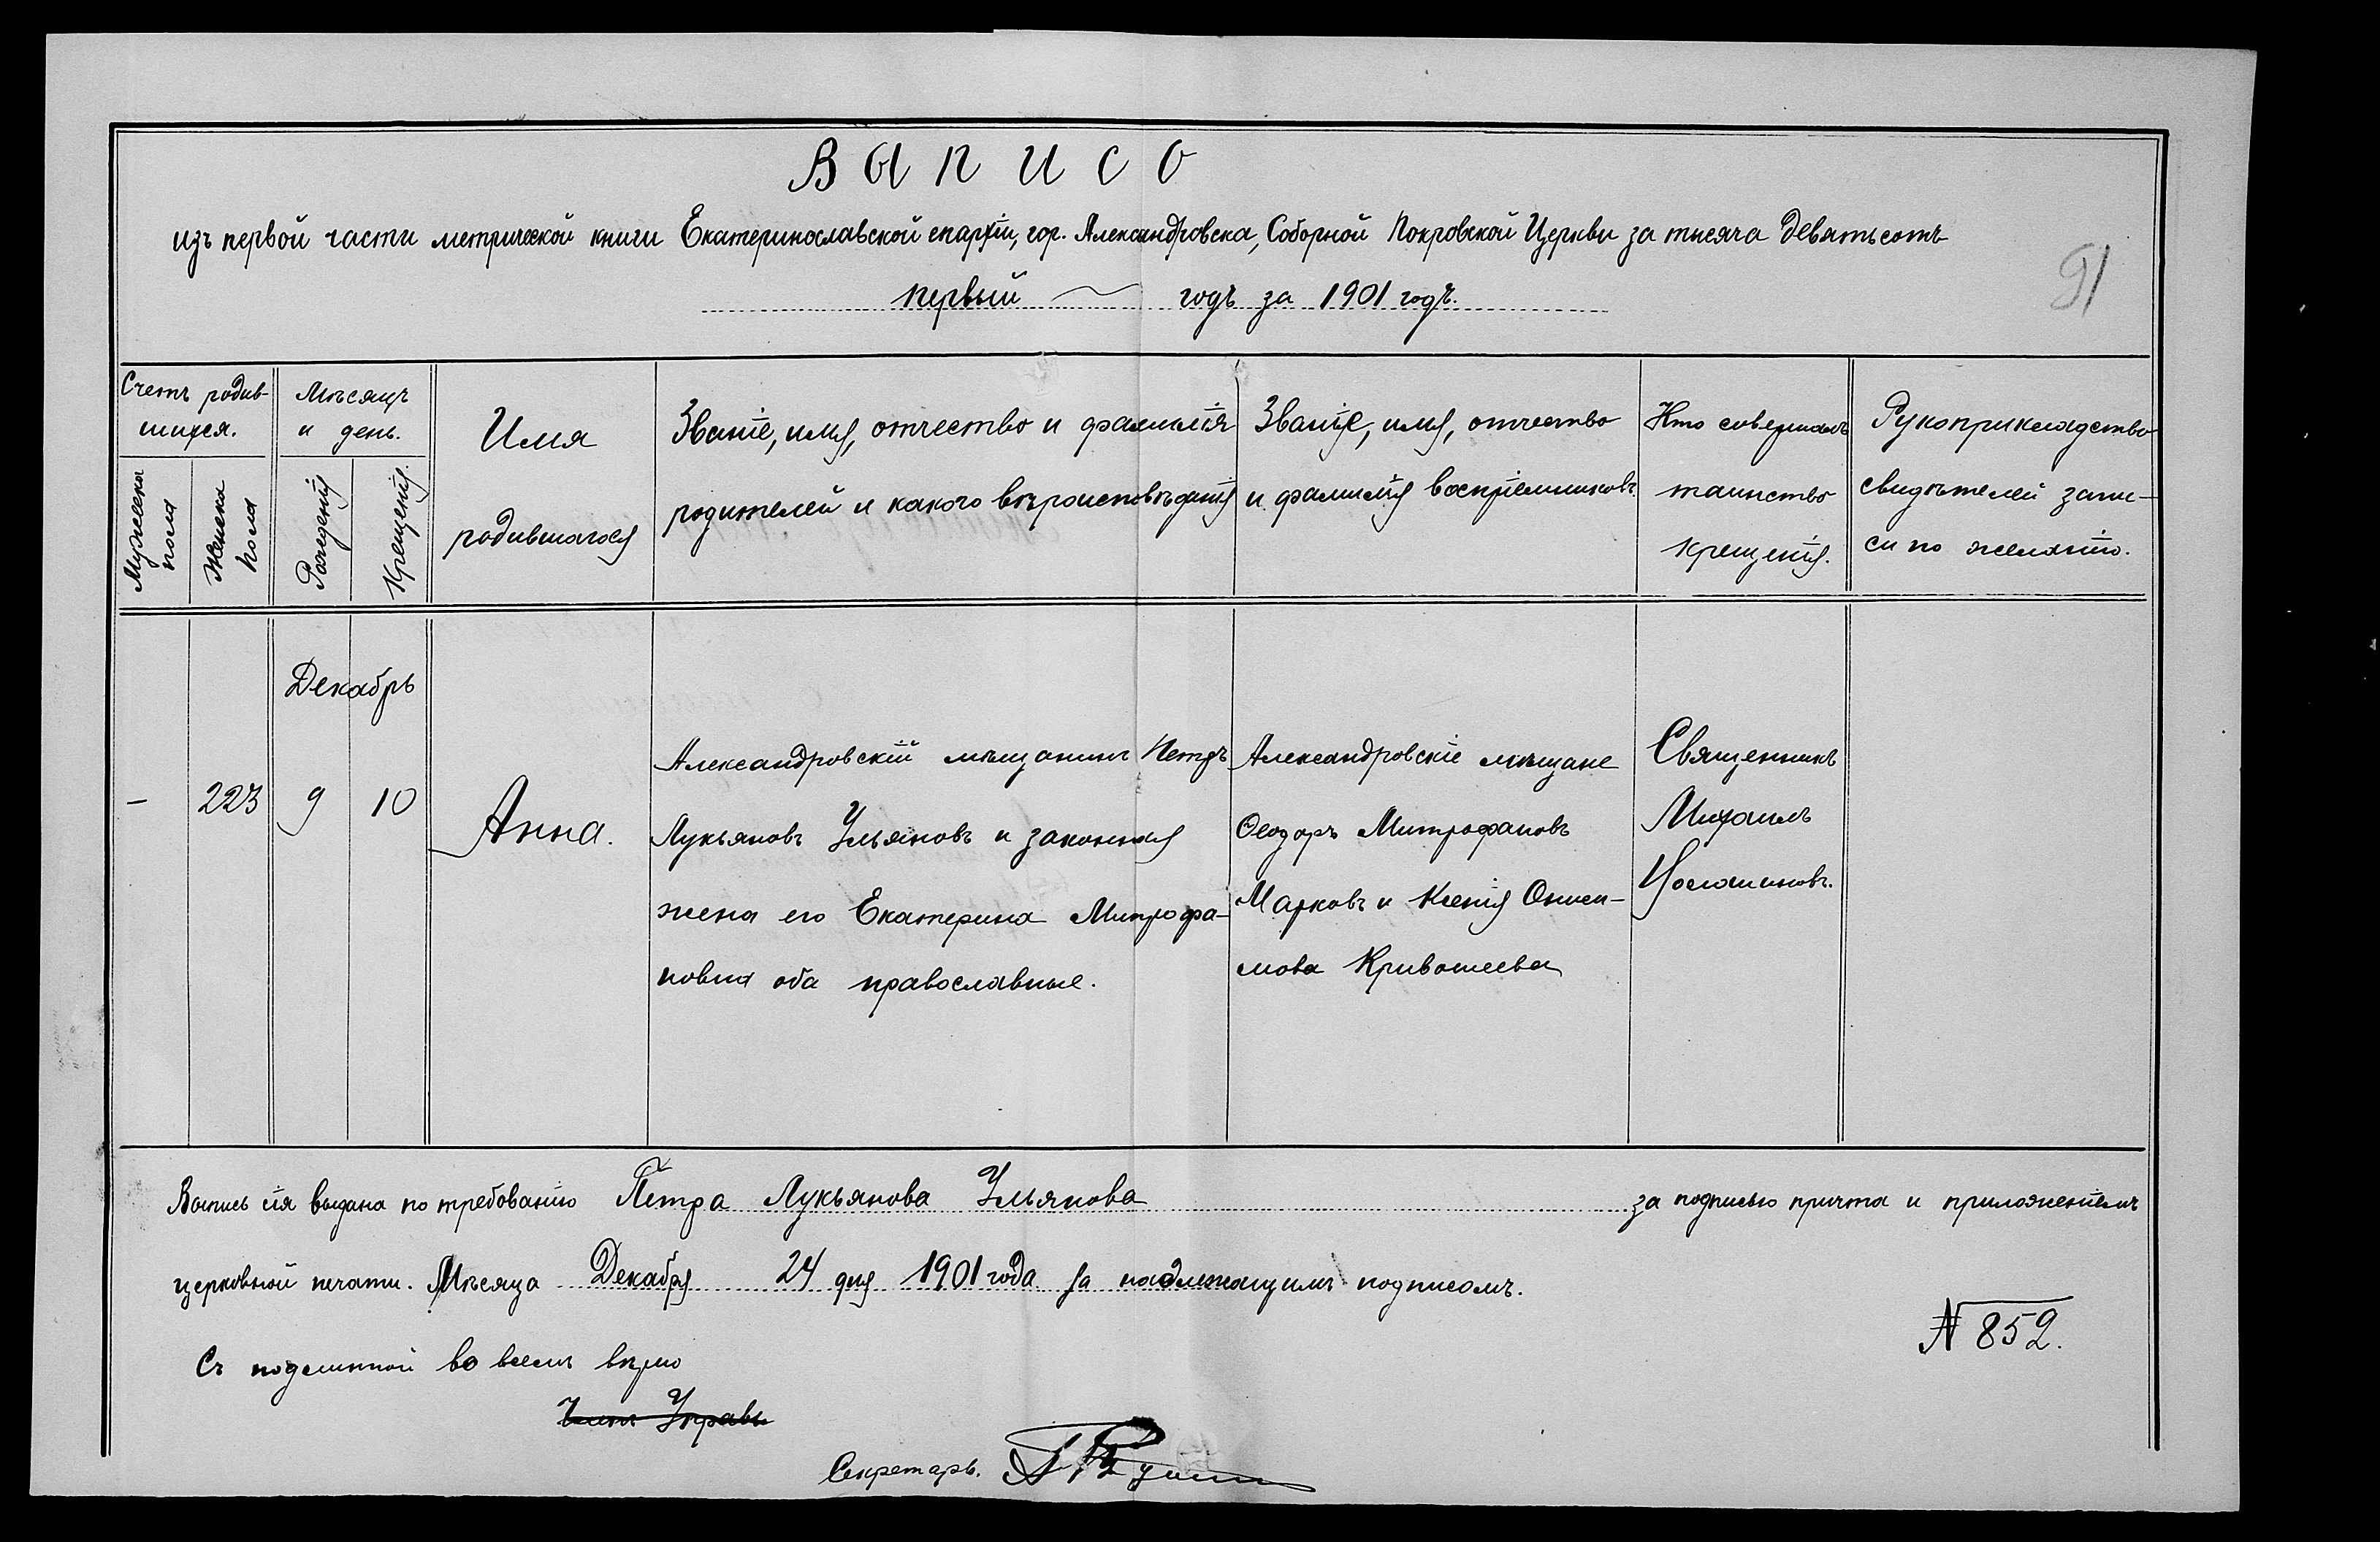 ВЫПИСЬ
изъ первой части метрической книги Екатеринославской епархіи, гор. Александровска, Соборной Покровской Церкви за тысяча девятьсотъ
91
первый годъ за 1901 годъ.
Счетъ родив-
шихся.
Мужеска пола
Женска пола
Мѣсяцъ
и день.
Рожденія
Крещенія.
Имя
родившагося
Званіе, имя, отчество и фамилія
родителей и какого вѣроисповѣданія
Званіе, имя, отчество
и фамилія воспріемниковъ
Кто совершалъ
таинство
крещенія.
Рукоприкладство
свидѣтелей запи-
си по желанію.
Декабрь
-
223
9
10
Анна.
Александровскій мѣщанинъ Петръ
Лукьяновъ Ульяновъ и законная
жена его Екатерина Митрофа-
новна оба православные.
Александровскіе мѣщане
Ѳеодоръ Митрофановъ
Марковъ и Ксенія Ониси-
мова Кривошеева
Священникъ
Михаилъ
Выпись сія выдана по требованію Петра Лукьянова Ульянова за подписью причта и приложеніемъ
церковной печати. Мѣсяца Декабря 24 дня 1901 года за надлежащимъ подписомъ.
№ 852.
Съ подлинной во всемъ вѣрно
Членъ Управы
Секретарь.